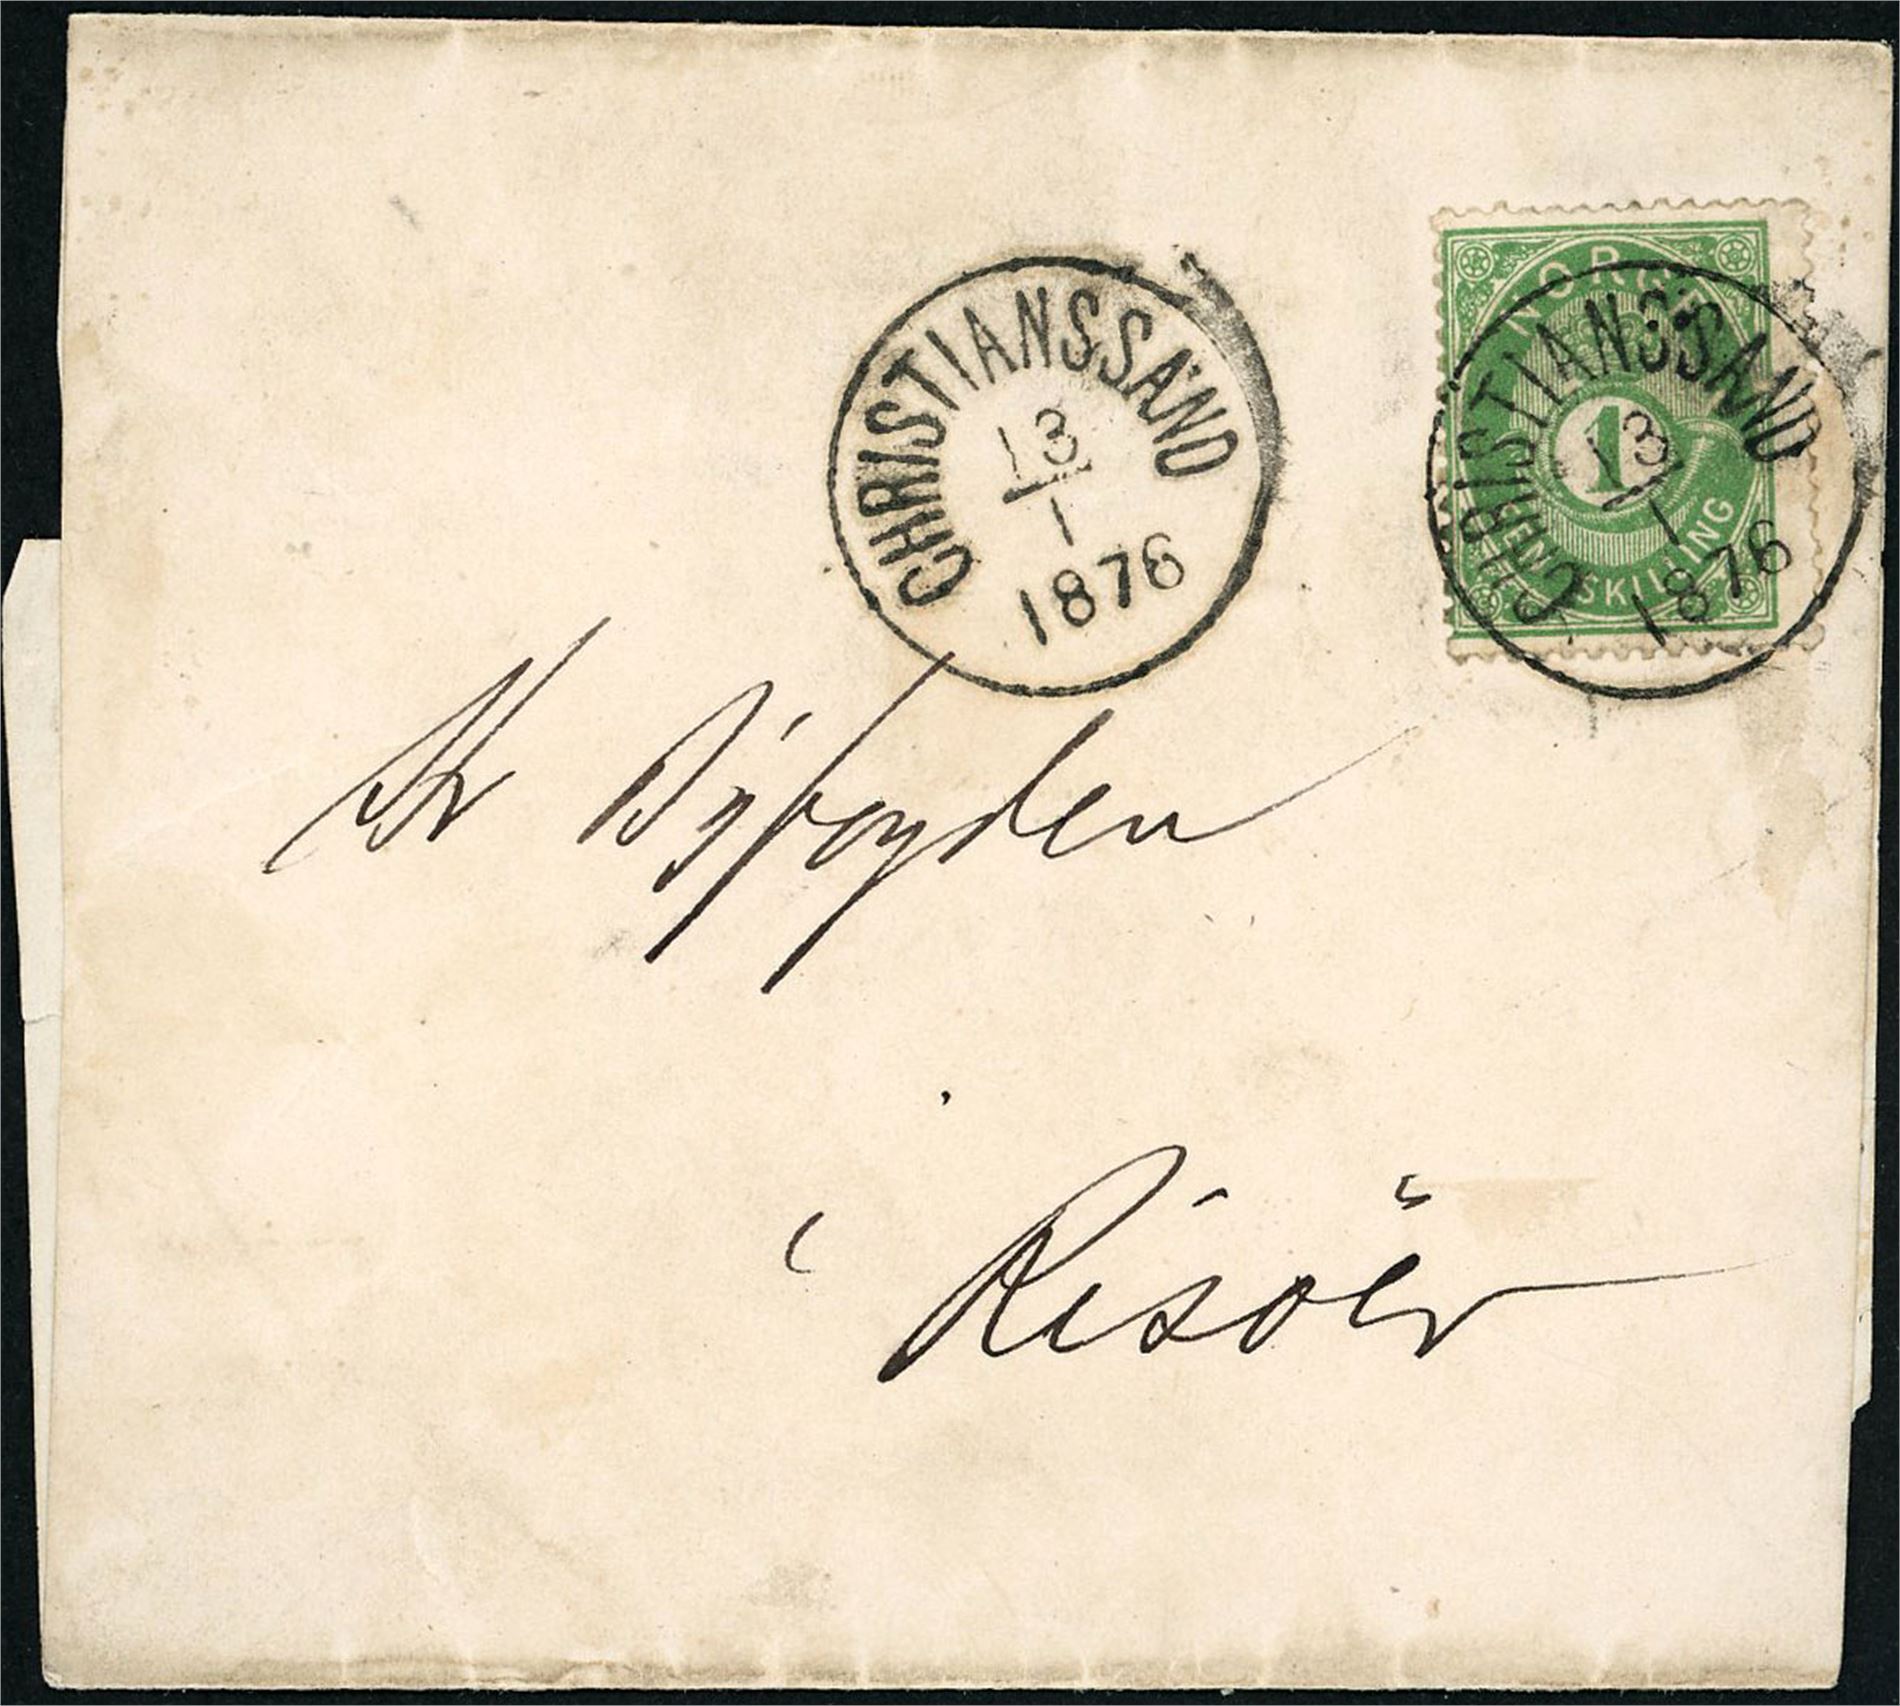 CHRISTIANSSAND
13
1
1876
NORGE
1
EN SKILLING
CHRISTIANSSAND
13
1
1876
Hr Byfogden
i Risöer